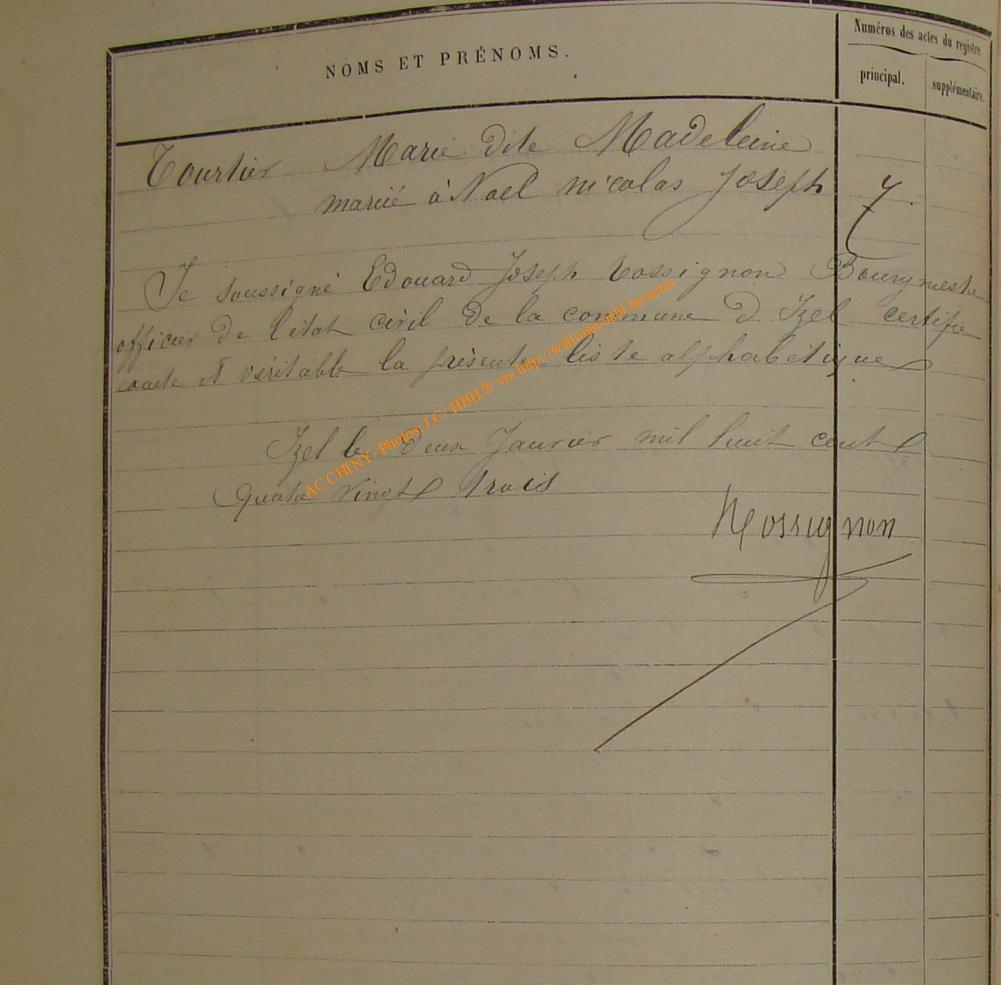 NOMS ET PRÉNOMS.
Numéros des actes du registre
principal.
supplémentaire.
Tourtier Marie dite Madeleine
marié à Noel nicolas Joseph 7
Je soussigné Edouard Joseph Rossignon Bourgmestre
officier de l'état civil de la commune d Izel certifie
exacte et véritable la présente liste alphabétique
Izel le deux Janvier mil huit cent
Quatre vingt trois
Rossignon
AC CHINY- Photos J.C/ HBH ® via http://wallonia-asbl.be/actes